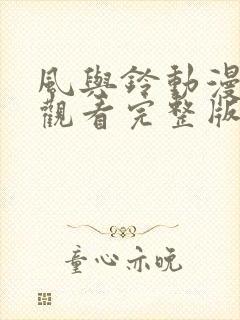 風與鈴動漫
觀看完整版
童心亦晚